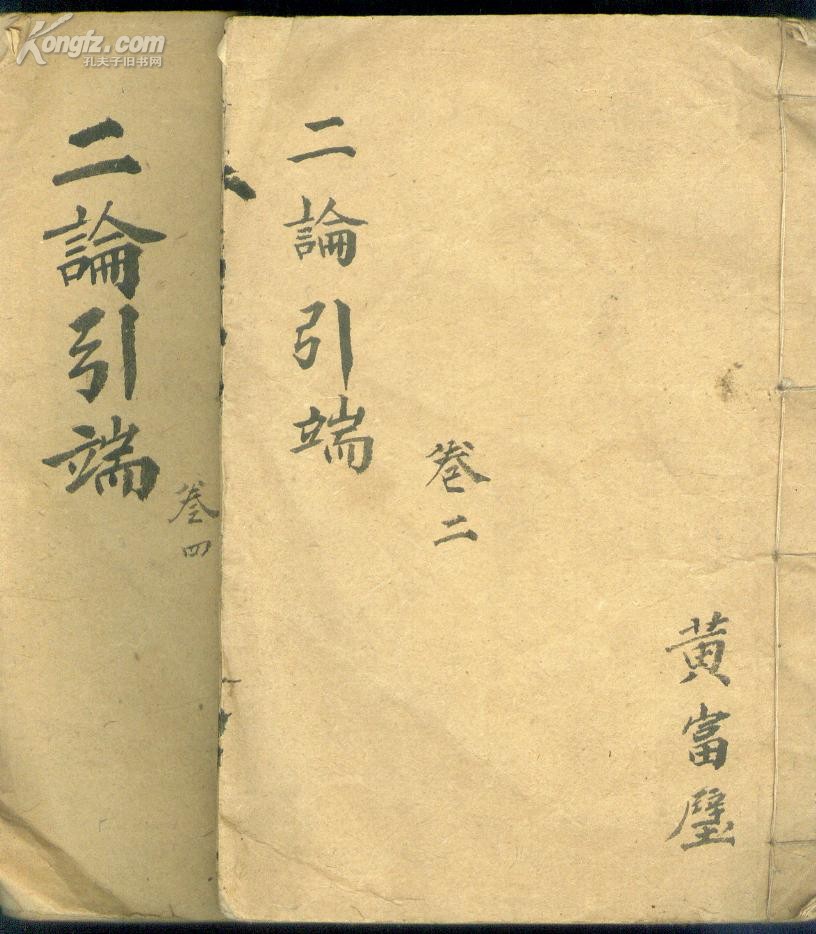 Kongfz.com
孔夫子旧书网
黄富璧
二論引端
卷二
二論引端
卷四